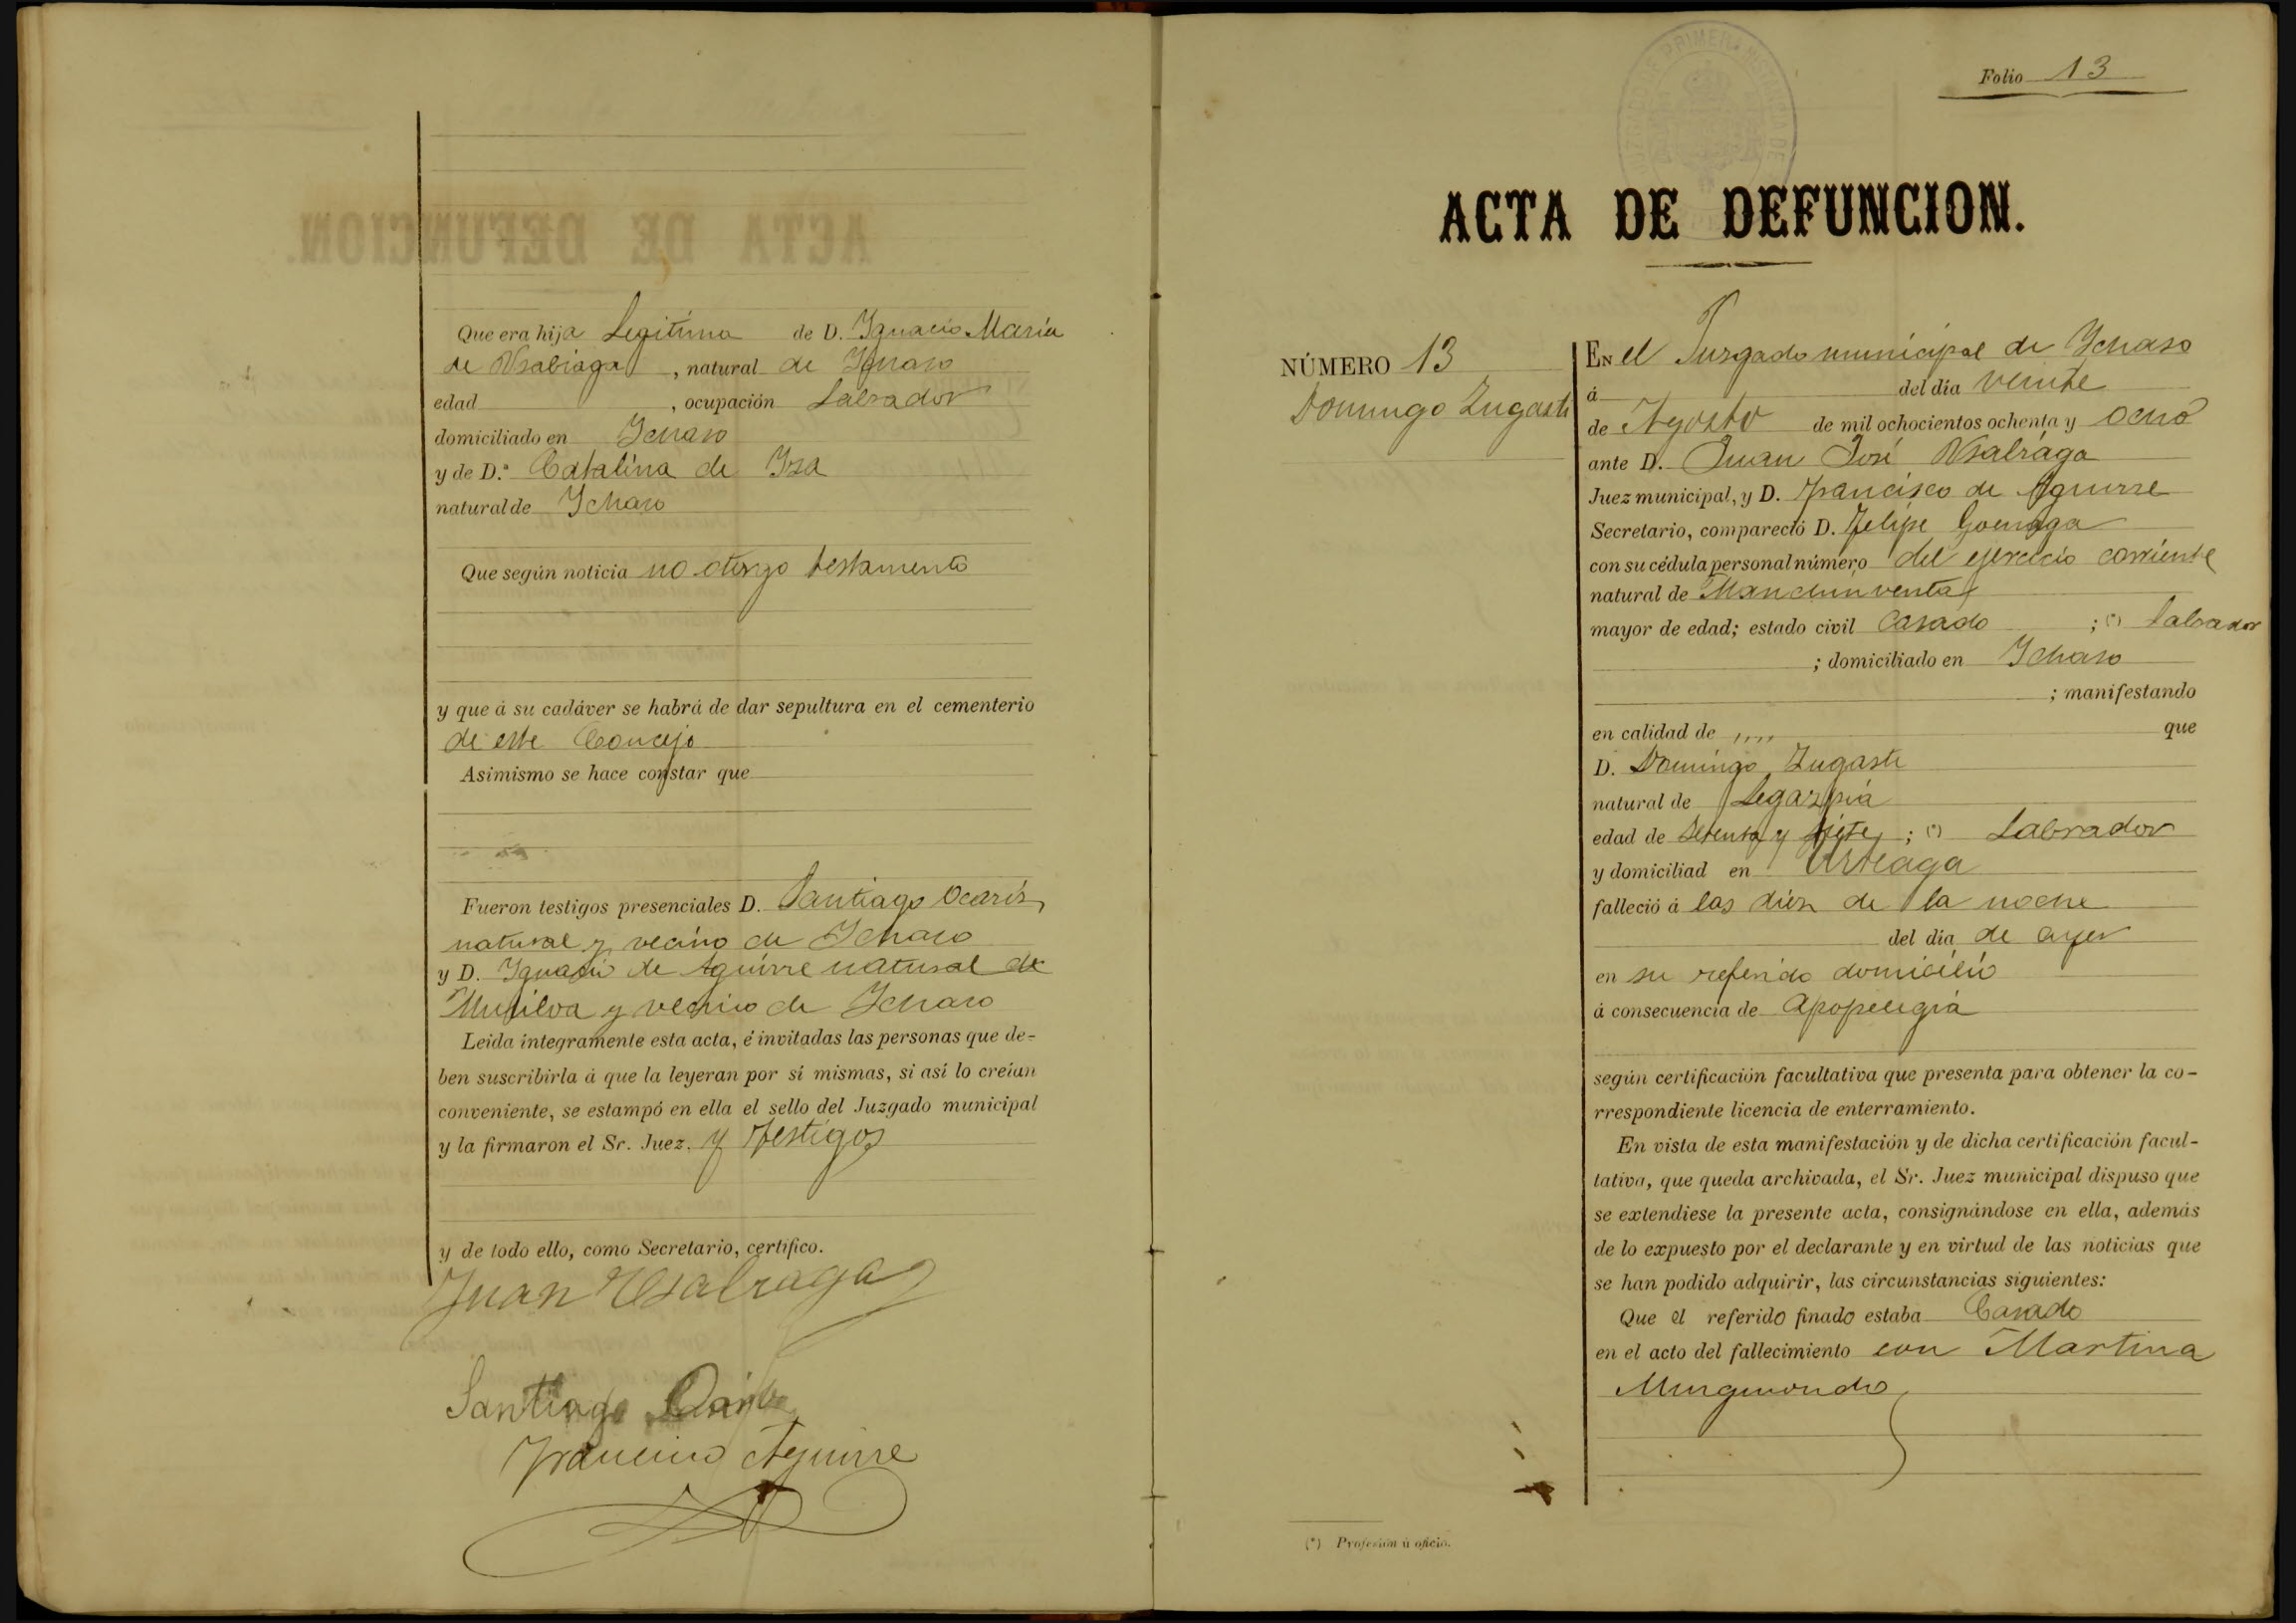 Que era hija Legitima de D. Ygnacio Maria
de Usabiaga, natural de Ychaso
edad , ocupación Labrador
domiciliado en Ychaso
y de D.ª Catalina de Yza
natural de Ychaso
Que según noticia no otorgo testamento
y que á su cadáver se habrá de dar sepultura en el cementerio
de este Concejo
Asimismo se hace constar que
Fueron testigos presenciales D. Santiago Ocariz,
natural y vecino de Ychaso
y D. Ygnacio de Aguirre natural de
Mutiloa y vecino de Ychaso
Leida íntegramente esta acta, é invitadas las personas que de-
ben suscribirla á que la leyeran por sí mismas, si así lo creían
conveniente, se estampó en ella el sello del Juzgado municipal
y la firmaron el Sr. Juez. y testigos
y de todo ello, como Secretario, certifico.
Juan Usabraga
Santiago
Francisco Aguirre
Folio 13
ACTA DE DEFUNCION.
NÚMERO 13
Domingo Zugasti
EN el Juzgado municipal de Ychaso
á del dia veinte
de Agosto de mil ochocientos ochenta y ocho
ante D. Juan José Usabraga
Juez municipal, y D. Francisco de Aguirre
Secretario, compareció D. Felipe Goenaga
con su cédula personal número del ejercicio corriente
natural de
mayor de edad; estado civil Casado ; (*) labrador
; domiciliado en Ychaso
; manifestando
en calidad de ,,,, que
D. Domingo Zugasti
natural de Legazpia
edad de Setenta y siete ; (*) Labrador
y domiciliad en Arteaga
falleció á las diez de la noche
del dia de ayer
en su referido domicilio
á consecuencia de Apopelegia
según certificación facultativa que presenta para obtener la co-
rrespondiente licencia de enterramiento.
En vista de esta manifestación y de dicha certificación facul-
tativa, que queda archivada, el Sr. Juez municipal dispuso que
se extendiese la presente acta, consignándose en ella, además
de lo expuesto por el declarante y en virtud de las noticias que
se han podido adquirir, las circunstancias siguientes:
Que el referido finado estaba Casado
en el acto del fallecimiento con Martina
(*) Profesión ú oficio.